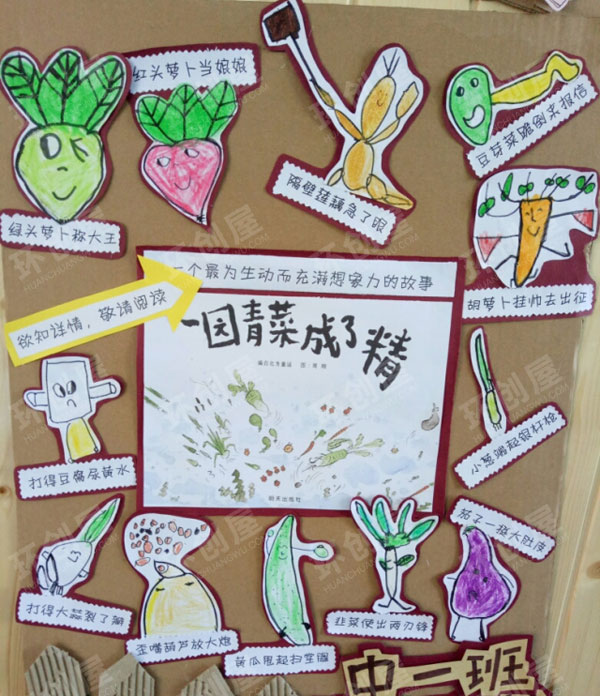 红头萝卜当娘娘
绿头萝卜称大王
隔壁莲藕急了眼
豆芽菜跪倒来报信
胡萝卜挂帅去出征
一个最为生动而充满想象力的故事
欲知详情，敬请阅读
一园青菜成了精
编自北方童谣 图：周翔
明天出版社
小葱端起银杆枪
打得豆腐尿黄水
茄子一挺大肚皮
打得大蒜裂了瓣
歪嘴葫芦放大炮
黄瓜甩起扫堂腿
韭菜使出两刃锋
中二班
环创屋